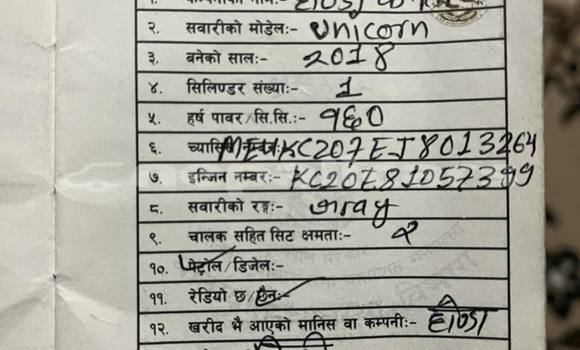 १. कम्पनीको नाम:- होण्डा
२. सवारीको मोडेल:- Unicorn
३. बनेको साल:- 2018
४. सिलिण्डर संख्या:- 1
५. हर्ष पावर/सि.सि.:- १६०
६. च्यासिस नम्बर:- ME4KC207EJ8013264
७. इन्जिन नम्बर:- KC20E81057399
८. सवारीको रङ्ग:- Gray
९. चालक सहित सिट क्षमता:- २
१०. पेट्रोल/डिजेल:-
११. रेडियो छ/छैन:-
१२. खरीद भै आएको मानिस वा कम्पनी:- होण्डा